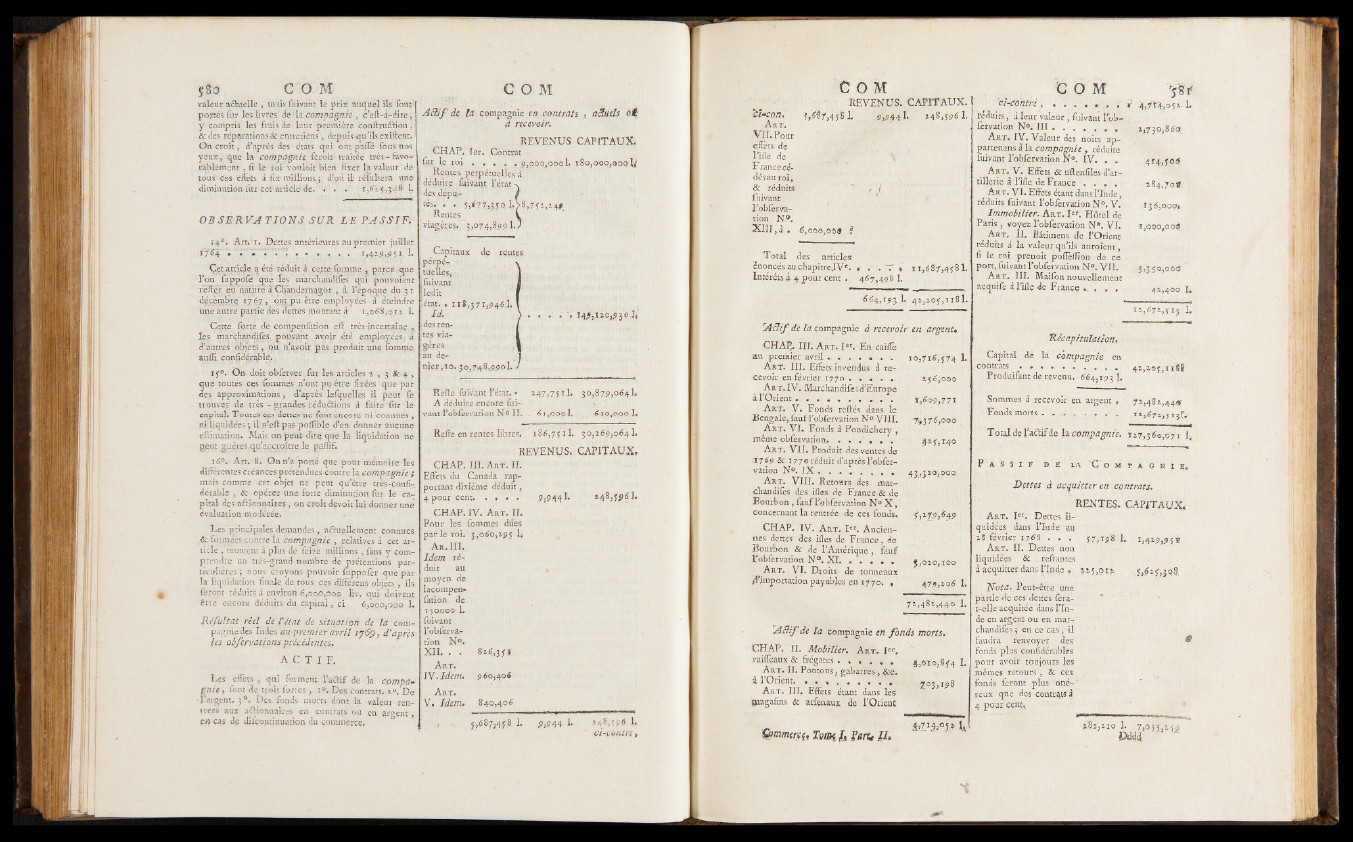 580 C O M
valeur actuelle , mais ſuivant le prix auquel ils ſont
portés ſur les livres de la compagnie , c'eſt-à-dire,
y compris les frais de leur première conſtruction,
& des réparations & entretiens , depuis qu'ils exiſtent.
On croit, d'après des états qui ont paſſé ſous nos
yeux, que la compagnie ſeroit traitée très-favo-
rablement , ſi le roi vouloit bien fixer la valeur de
tous ces effets à ſix millions; d'où il réſultera une
diminution ſur cet article de. . . . 1,625,348 l.
OBSERVATIONS SUR LE PASSIF.
14°. Art. 1. Dettes antérieures au premier juillet
1764 . . . . . . . . . . . 1,429,951 l.
Cet article a été réduit à cette ſomme, parce que
l'on ſuppoſe que les marchandiſes qui pouvoient
reſter en nature à Chandernagor , à l'époque du 31
décembre 1767, ont pu être employées à éteindre
une autre partie des dettes montant à 1,068,012 l.
Cette ſorte de compenſation eſt très-incertaine ,
les marchandiſes pouvant avoir été employées, à
d'autres objets , ou n'avoir pas produit une ſomme
auſſi conſidérable.
15°. On doit obſerver ſur les articles 2 , 3 & 4 ,
que toutes ces ſommes n'ont pu être fixées que par
des approximations, d'après leſquelles il peut ſe
trouver de très-grandes réductions à faire ſur le
capital. Toutes ces dettes ne ſont encore ni connues ,
ni liquidées; il n'eſt pas poſſible d'en donner aucune
eſtimation. Mais on peut dire que la liquidation ne
peut guères qu'accroître le paſſif.
16°. Art. 8. On n'a porté que pour mémoire les
différentes créances prétendues contre la compagnie ;
mais comme cet objet ne peut qu'être très-conſi-
dérable , & opérer une forte diminution ſur le ca-
pital des actionnaires , on croit devoir lui donner une
évaluation modérée.
Les principales demandes , actuellement connues
& formées contre la compagnie , relatives à cet ar-
ticle , montent à plus de ſeize millions , ſans y com-
prendre un très-grand nombre de prétentions par-
ticulières ; nous croyons pouvoir ſuppoſer que par
la liquidation finale de tous ces différens objets , ils
ſeront réduits à environ 6,000,000 liv. qui doivent
être encore déduits du capital, ci 6,000,000 l.
Réſultat réel de l'état de ſituation de la com-
pagnie des Indes au premier avril 1769, d'après
les obſervations précédentes.
A C T I F.
Les effets , qui forment l'actif de la compa-
gnie, ſont de trois ſortes , 1°. Des contrats. 2°. De
l'argent. 3°. Des fonds morts dont la valeur ren-
trera aux actionnaires en contrats ou en argent ,
en cas de diſcontinuation du commerce.
C O M
Actif de la compagnie en contrats , actuels ou
à recevoir.
REVENUS CAPITAUX.
CHAP. Ier. Contrat
ſur le roi . . . . . 9,000,000 l. 180,000,000 l.
Rentes perpétuelles à
déduire ſuivant l'état
des dépu-
tés. . . 5,677,350 l. 8,752,249
Rentes
viagères. 3,074,899 l.
Capitaux de rentes
perpé-
tuelles,
ſuivant
ledit
état. . 118,371,946 l.
Id. . . . . . 149,120,936 l.
des ren-
tes via-
gères
au de-
nier, 10. 30,748,990 l.
Reſte ſuivant l'état. . 247,751 l. 30,879,064 l.
A déduire encore ſui-
vant l'obſervation N° II. . 61,000 l. 610,000 l.
Reſte en rentes libres. 186,751 l. 30,269,064 l.
REVENUS. CAPITAUX.
CHAP. III. ART. II.
Effets du Canada rap-
portant dixième déduit,
4 pour cent. . . . . 9,944 l. 248,596 l.
CHAP. IV. ART. II.
Pour les ſommes dûes
par le roi. 3,060,295 l.
AR. III.
Idem ré-
duit au
moyen de
la compen-
ſation de
150000 l.
ſuivant
l'obſerva-
tion N°.
XII. . . 826,353
ART.
IV. Idem. 960,406
ART.
V. Idem. 840,406
5,687,458 l. 9,944 l. 248,596 l.
ci-contre,
C O M
REVENUS. CAPITAUX.
Ci-con. 5,687,458 l. 9,944 l. 248,596 l.
ART.
VII. Pour
effets de
l'iſle de
France cé-
dés au roi,
& réduits
ſuivant
l'obſerva-
tion N°.
XIII, à . 6,000,000
Total des articles
énoncés au chapitre IVe. . . . . 11,687,458 l.
Intérêts à 4 pour cent . 467,498 l.
664,193 l. 42,205,118 l.
Actif de la compagnie à recevoir en argent.
CHAP. III. ART. Ier. En caiſſe
au premier avril . . . . . . . 10,716,574 l.
ART. III. Effets invendus à re-
cevoir en février 1770 . . . . . 256,000
ART. IV. Marchandiſes d'Europe
à l'Orient . . . . . . . . . . 1,609,771
ART. V. Fonds reſtés dans le
Bengale, ſauf l'obſervation N° VIII. 7,376,000
ART. VI. Fonds à Pondichery ,
même obſervation. . . . . . . 425,140
ART. VII. Produit des ventes de
1769 & 1770 réduit d'après l'obſer-
vation N°. IX . . . . . . . . 43,320,000
ART. VIII. Retours des mar-
chandiſes des iſles de France & de
Bourbon, ſauf l'obſervation N° X,
concernant la rentrée de ces fonds. 5,279,649
CHAP. IV. ART. Ier. Ancien-
nes dettes des iſles de France, de
Bourbon & de l'Amérique , ſauf
l'obſervation N°. XI. . . . . . 5,020,100
ART. VI. Droits de tonneaux
d'importation payables en 1770. , 479,206 l.
72,482,440 l.
Actif de la compagnie en fonds morts.
CHAP. II. Mobilier. ART. Ier.
vaiſſeaux & frégates . . . . . . 4,010,854 l.
ART. II. Pontons, gabarres, &c.
à l'Orient. . . . . . . . . . 703,198
ART. III. Effets étant dans les
magaſins & arſenaux de l'Orient
4,714,052 l.
Commerce. Tome I. Part. II.
C O M 581
ci-contre , . . . . . . . 4,714,052 l.
réduits, à leur valeur, ſuivant l'ob-
ſervation N°. III . . . . . . . 2,730,860
ART. IV. Valeur des noirs ap-
partenans à la compagnie , réduite
ſuivant l'obſervation N°. IV. . . 414,500
ART. V. Effets & uſtenſiles d'ar-
tillerie à l'iſle de France . . . . 284,701
ART. VI. Effets étant dans l'Inde,
réduits ſuivant l'obſervation N°. V. 136,000
Immobilier. ART. Ier. Hôtel de
Paris , voyez l'obſervation N°. VI. 1,000,000
ART. II. Bâtimens de l'Orient
réduits à la valeur qu'ils auroient,
ſi le roi prenoit poſſeſſion de ce
port, ſuivant l'obſervation N°. VII. 3,350,000
ART. III. Maiſon nouvellement
acquiſe à l'iſle de France . . . . 42,400 l.
12,672,513 l.
Récapitulation.
Capital de la compagnie en
contrats . . . . . . . . . . 42,205,118
Produiſant de revenu. 664,193 l.
Sommes à recevoir en argent , 72,482,440
Fonds morts . . . . . . . . 12,672,513 l.
Total de l'actif de la compagnie. 127,360,071 l.
PASSIF DE LA COMPAGNIE.
Dettes à acquitter en contrats.
RENTES. CAPITAUX.
ART. Ier. Dettes li-
quidées dans l'Inde au
28 février 1768 . . . 57,198 l. 1,429,951
ART. II. Dettes non
liquidées & reſtantes
à acquitter dans l'Inde . 225,012 5,625,308
Nota. Peut-être une
partie de ces dettes ſera-
t-elle acquitée dans l'In-
de en argent ou en mar-
chandiſes ; en ce cas, il
faudra renvoyer des
fonds plus conſidérables
pour avoir toujours les
mêmes retours , & ces
fonds ſeront plus oné-
reux que des contrats à
4 pour cent.
282,210 l. 7,055,259
Dddd